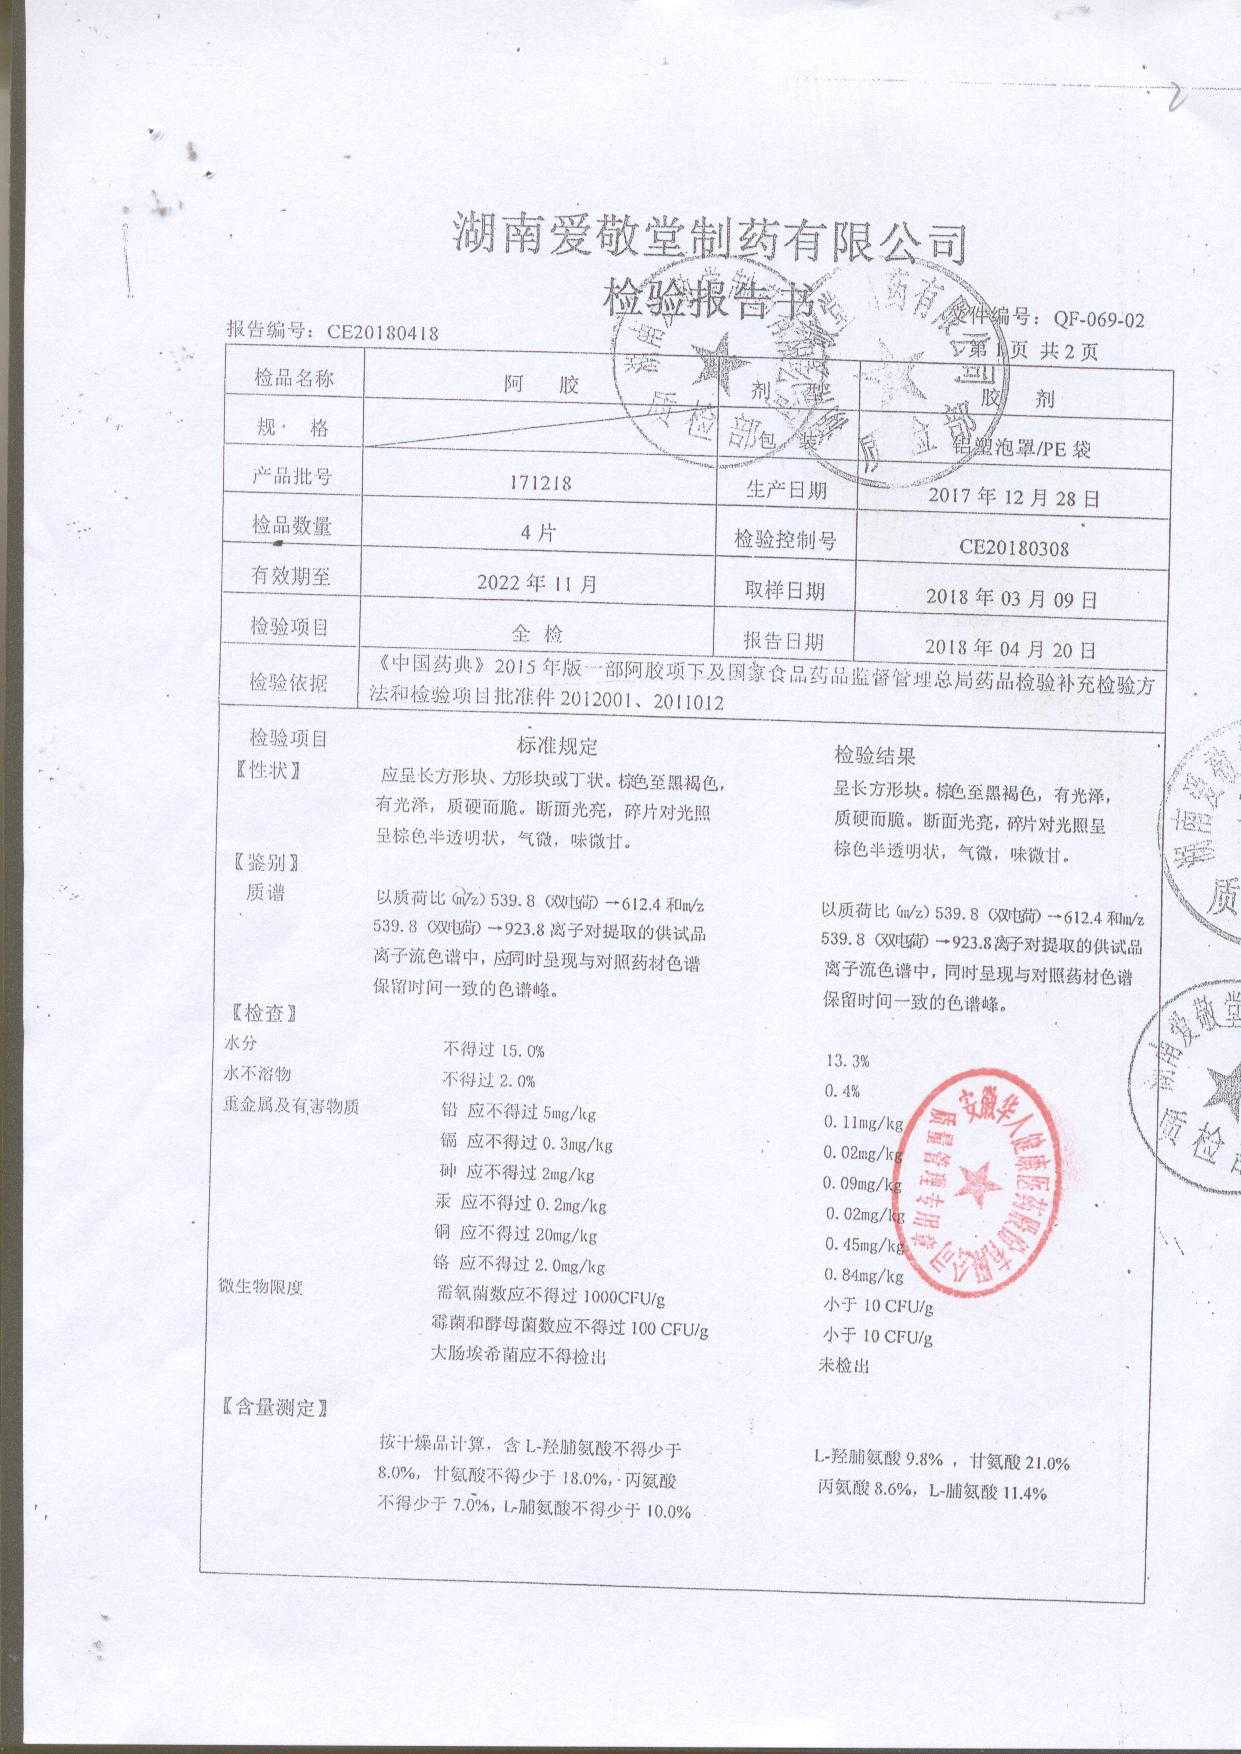 2
湖南爱敬堂制药有限公司
检验报告书
报告编号：CE20180418
文件编号：QF-069-02
第1页 共2页
检品名称 阿 胶 剂 型 胶 剂
规 格 包 装 铝塑泡罩/PE袋
产品批号 171218 生产日期 2017年12月28日
检品数量 4片 检验控制号 CE20180308
有效期至 2022年11月 取样日期 2018年03月09日
检验项目 全 检 报告日期 2018年04月20日
检验依据 《中国药典》2015年版一部阿胶项下及国家食品药品监督管理总局药品检验补充检验方
法和检验项目批准件2012001、2011012
检验项目 标准规定 检验结果
【性状】 应呈长方形块、方形块或丁状。棕色至黑褐色， 呈长方形块。棕色至黑褐色，有光泽，
有光泽，质硬而脆。断面光亮，碎片对光照 质硬而脆。断面光亮，碎片对光照呈
呈棕色半透明状，气微，味微甘。 棕色半透明状，气微，味微甘。
【鉴别】
质谱 以质荷比（m/z）539.8（双电荷）→612.4和m/z 以质荷比（m/z）539.8（双电荷）→612.4和m/z
539.8（双电荷）→923.8离子对提取的供试品 539.8（双电荷）→923.8离子对提取的供试品
离子流色谱中，应同时呈现与对照药材色谱 离子流色谱中，同时呈现与对照药材色谱
保留时间一致的色谱峰。 保留时间一致的色谱峰。
【检查】
水分 不得过15.0% 13.3%
水不溶物 不得过2.0% 0.4%
重金属及有害物质 铅 应不得过5mg/kg 0.11mg/kg
镉 应不得过0.3mg/kg 0.02mg/kg
砷 应不得过2mg/kg 0.09mg/kg
汞 应不得过0.2mg/kg 0.02mg/kg
铜 应不得过20mg/kg 0.45mg/kg
铬 应不得过2.0mg/kg 0.84mg/kg
微生物限度 需氧菌数应不得过1000CFU/g 小于10 CFU/g
霉菌和酵母菌数应不得过100 CFU/g 小于10 CFU/g
大肠埃希菌应不得检出 未检出
【含量测定】
按干燥品计算，含L-羟脯氨酸不得少于 L-羟脯氨酸9.8%，甘氨酸21.0%
8.0%，甘氨酸不得少于18.0%，丙氨酸 丙氨酸8.6%，L-脯氨酸11.4%
不得少于7.0%，L-脯氨酸不得少于10.0%
安徽华人健康医药股份有限公司
质量管理专用章
湖南爱敬堂
质检部